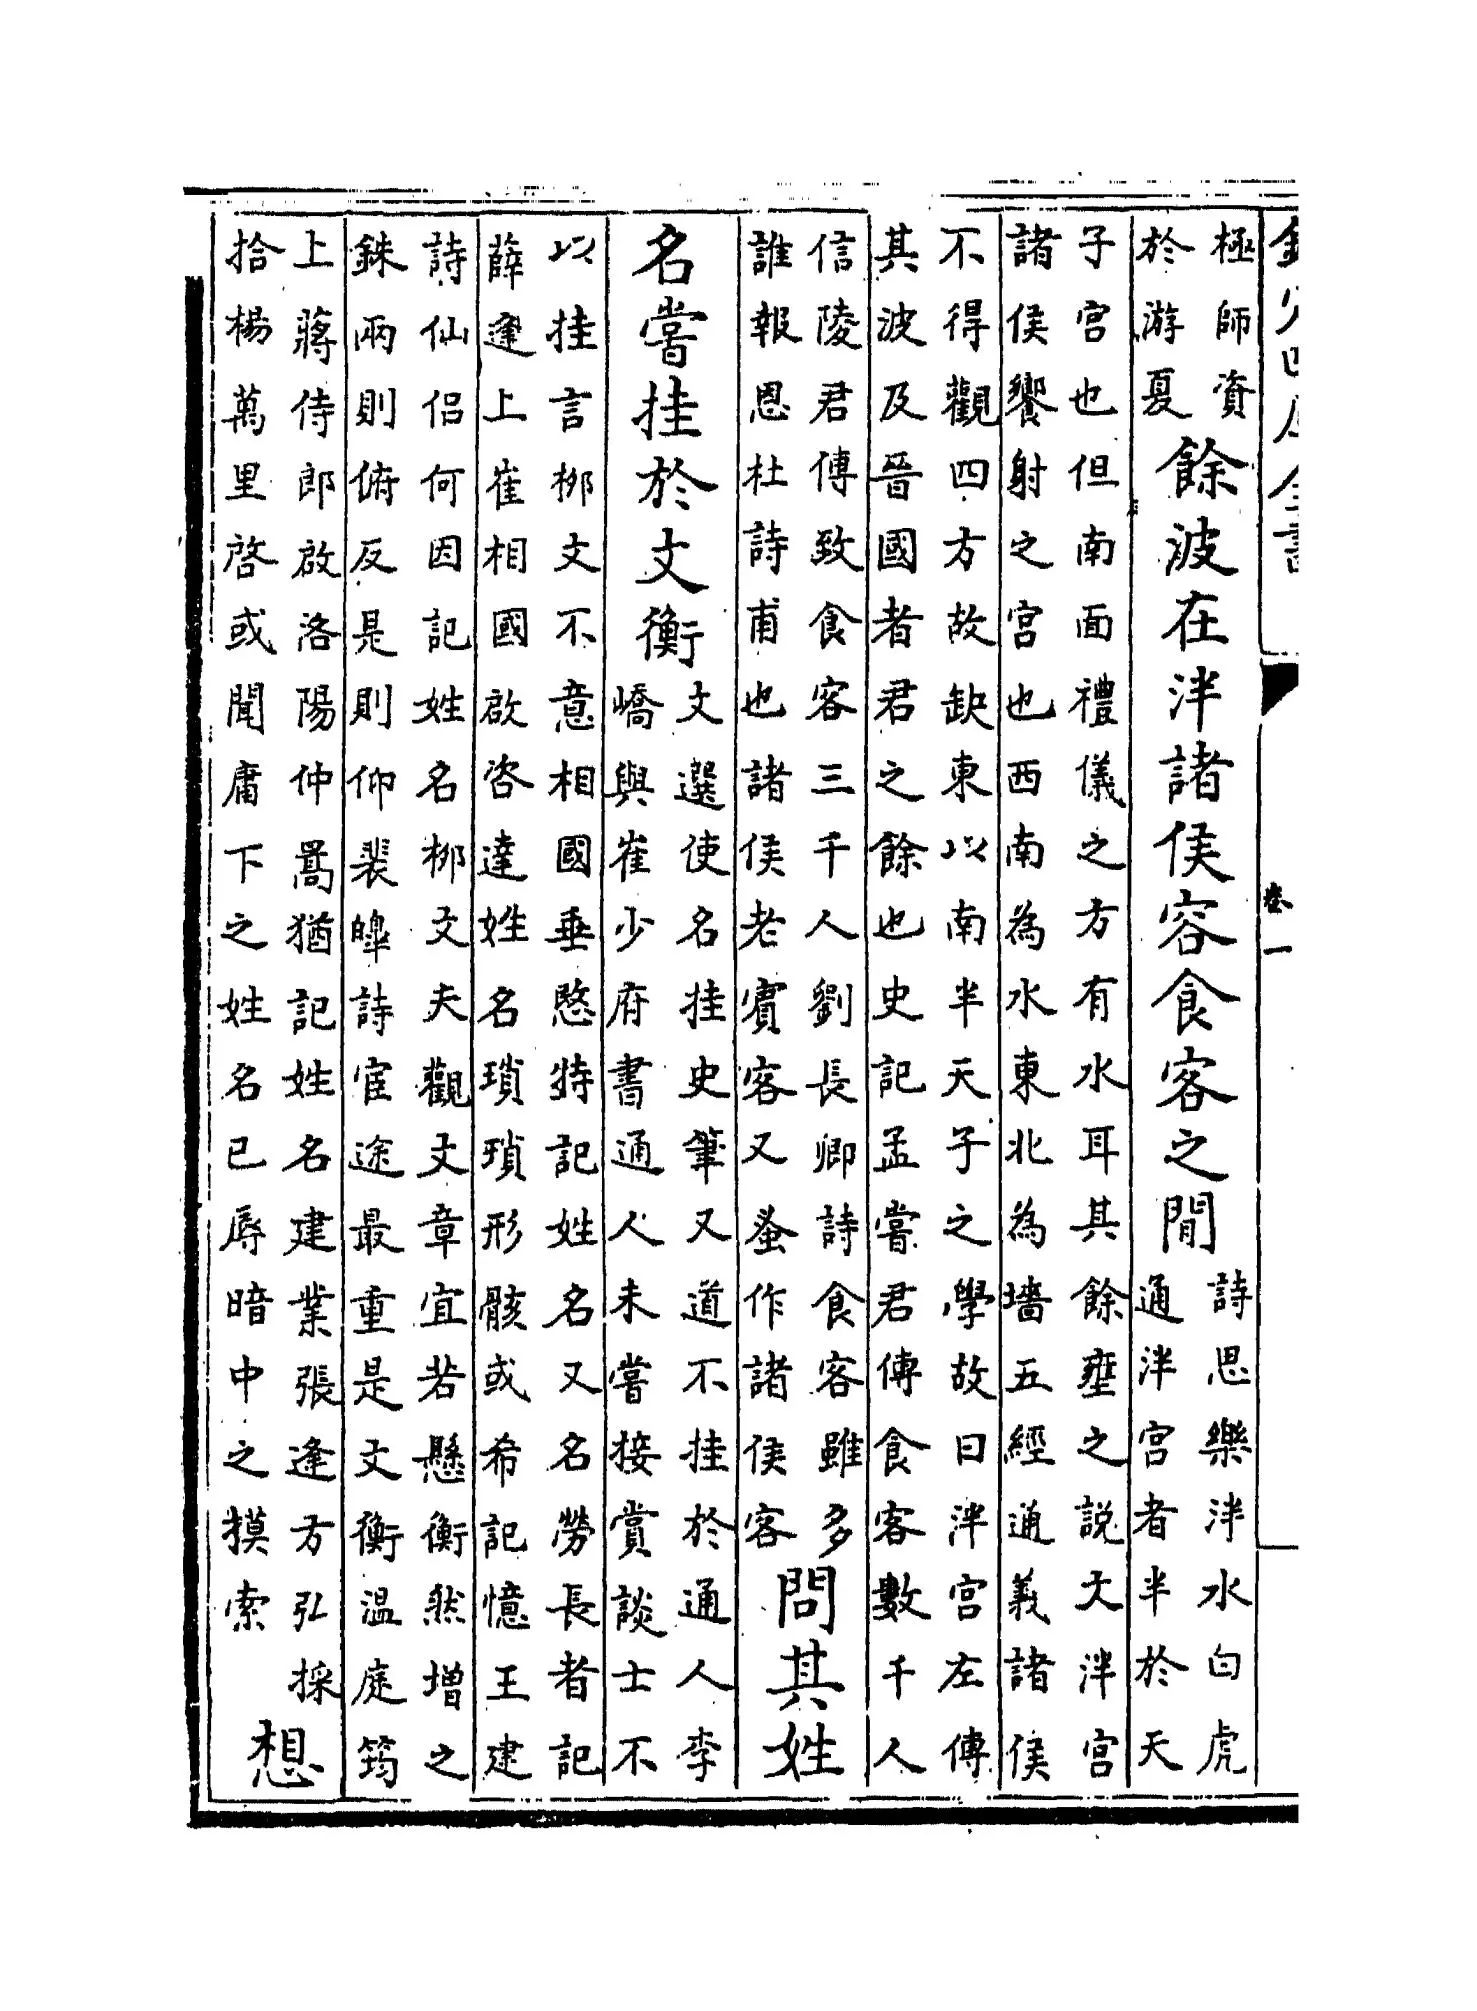 欽定四庫全書
卷一
極師資
於游夏
餘波在泮諸侯容食客之間
詩思樂泮水白虎
通泮宮者半於天
子宮也但南面禮儀之方有水耳其餘壅之說大泮宮
諸侯饗射之宮也西南為水東北為墻五經通義諸侯
不得觀四方故缺東以南半天子之學故曰泮宮左傳
其波及晉國者君之餘也史記孟嘗君傳食客數千人
信陵君傳致食客三千人劉長卿詩食客雖多
誰報恩杜詩甫也諸侯老賓客又蚤作諸侯客
問其姓
名嘗挂於文衡
文選使名挂史筆又道不挂於通人李
嶠與崔少府書通人未嘗接賞談士不
以挂言栁文不意相國垂愍特記姓名又名勞長者記
薛逢上崔相國啟咨達姓名瑣瑣形骸或希記憶王建
詩仙侶何因記姓名栁文夫觀文章宜若懸衡然增之
銖兩則俯反是則仰裴皞詩宦途最重是文衡温庭筠
上蔣侍郎啟洛陽仲暠猶記姓名建業張逢方弘採
拾楊萬里啓或聞庸下之姓名已辱暗中之摸索
想